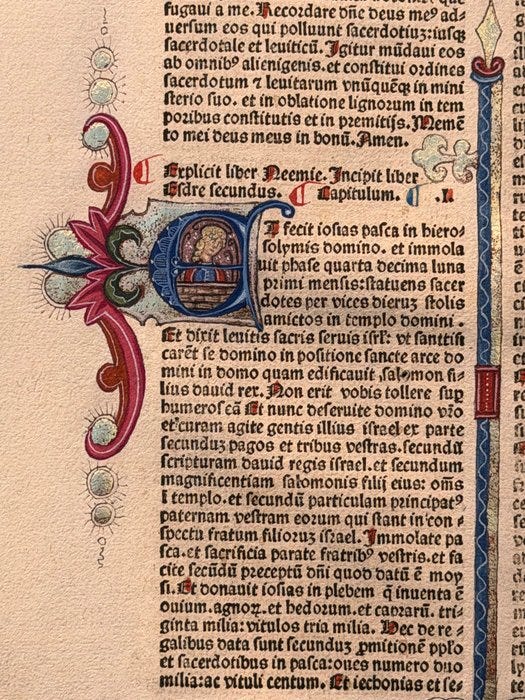 fugaui a me. Recordare dñe deus meꝰ ad⸗
uersum eos qui polluunt sacerdotiuz:iusqꝫ
sacerdotale et leuiticū. Igitur mūdaui eos
ab omnibꝰ alienigenis. et constitui ordines
sacerdotum ⁊ leuitarum vnūquēqꝫ in mini
sterio suo. et in oblatione lignorum in tem
poribus constitutis et in premitijs. Memē
to mei deus meus in bonū. Amen.
Explicit liber Neemie. Incipit liber
Esdre secundus. Capitulum. .I.
ET fecit iosias pasca in hiero⸗
solymis domino. et immola
uit phase quarta decima luna
primi mensis:statuens sacer
dotes per vices dieruz stolis
amictos in templo domini.
Et dixit leuitis sacris seruis isrl'. vt sanctifi
carēt se domino in positione sancte arce do
mini in domo quam edificauit salomon fi⸗
lius dauid rex. Non erit vobis tollere sup
humeros eā Et nunc deseruite domino vr̄o
et curam agite gentis illius israel ex parte
secunduz pagos et tribus vestras. secundū
scripturam dauid regis israel. et secundum
magnificentiam salomonis filij eius: om̄s
ī templo. et secundū particulam principatꝰ
paternam vestram eorum qui stant in con⸗
spectu fratrum filioruz israel. Immolate pa
sca. et sacrificia parate fratribꝰ vestris. et fa
cite secūdū preceptū dn̄i quod datū ē moy
si. Et donauit iosias in plebem q̄ inuenta ē
ouium. agnoꝝ. et hedorum. et caprarū. tri⸗
ginta milia: vitulos tria milia. Hec de re⸗
galibus data sunt secunduz ꝓmitionē pplo
et sacerdotibus in pasca: oues numero duo
milia: ac vituli centum. Et iechonias et se⸗